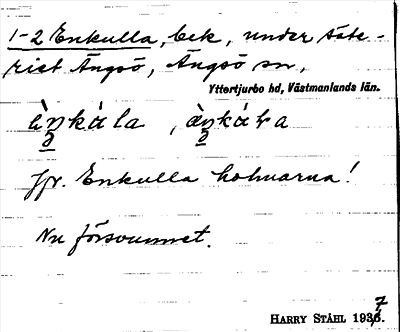 1-2 Enkulla, bek, under säte-
riet Ängsö, Ängsö sn,
Yttertjurbo hd, Västmanlands län.
Jfr. Enkulla holmarna!
Nu försvunnet.
HARRY STÅHL 1937.